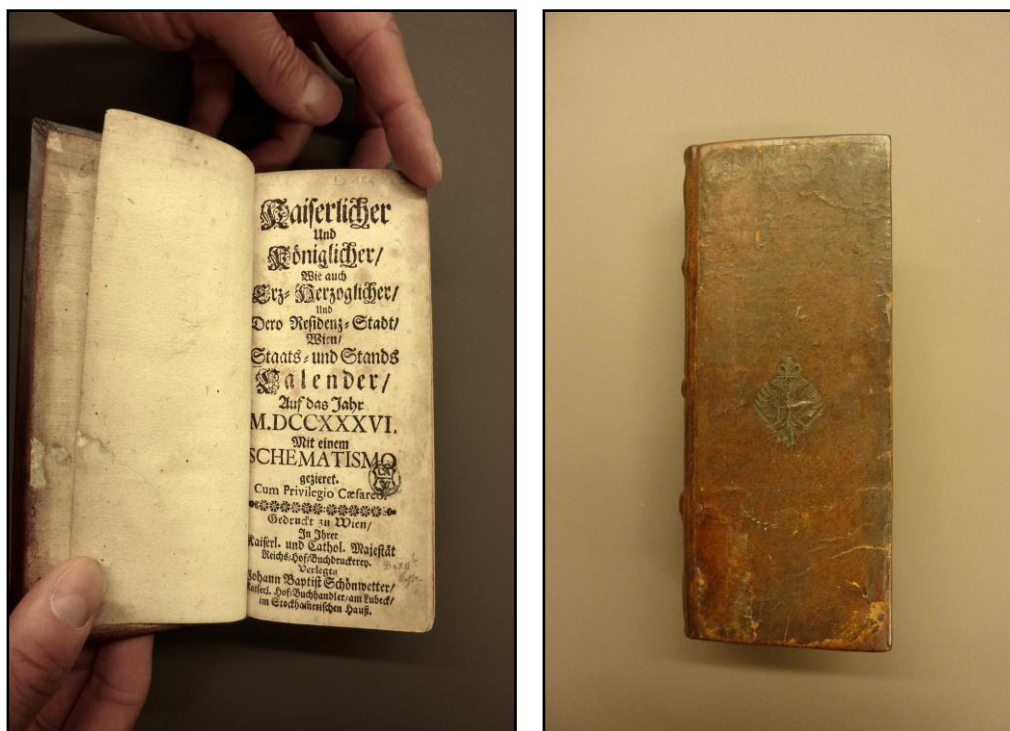 Kaiserlicher
Und
Königlicher/
Wie auch
Erz-Herzoglicher/
Und
Dero Residenz-Stadt/
Wien/
Staats- und Stands
Calender/
Auf das Jahr
M.DCCXXXVI.
Mit einem
SCHEMATISMO
gezieret.
Cum Privilegio Cæsareo.
Gedruckt zu Wien/
In Ihrer
Kaiserl. und Cathol. Majestät
Reichs-Hof-Buchdruckerey.
Verlegts
Johann Baptist Schönwetter/
Kaiserl. Hof-Buchhandler/am Lubeck/
im Stockhamerischen Hauß.